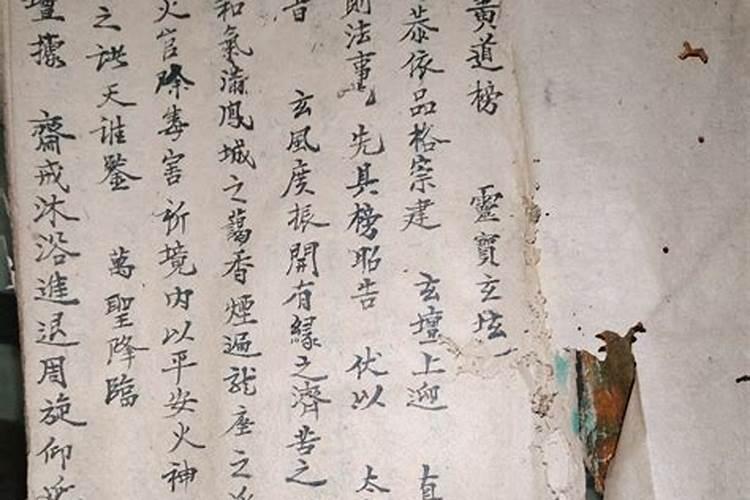 黃道榜 靈寶玄坛
恭依品格宗建 玄壇上迎 直
則法事 先具榜昭告 伏以 太
音 玄風度振開有緣之濟苦之
和氣滿鳳城之靄香煙遍龍座之
火官除毒害祈境內以平安火神
之 天誰鑒 萬聖降臨
壇據 齋戒沐浴進退周旋仰